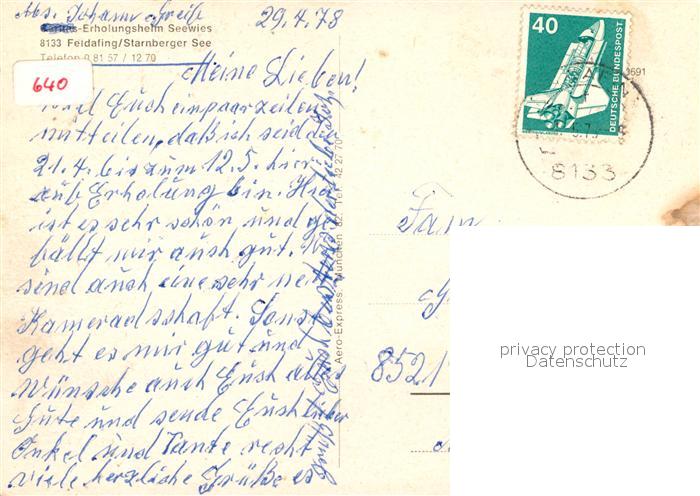 Abs. Johann Greiß 29.4.78
Caritas-Erholungsheim Seewies
8133 Feldafing/Starnberger See
Telefon 0 81 57 / 12 79
640
Meine Lieben!
Euch ein paar Zeilen
mitteilen, daß ich seid den
21.4. bis zum 12.5. hier
auf Erholung bin. Hier
ist es sehr schön und ge
fällt mir auch gut. Wir
sind auch eine sehr nette
Kameradschaft. Sonst
geht es mir gut und
wünsche auch Euch alles
Gute und sende Euch lieber
Onkel und Tante recht
viele herzliche Grüße es
grüßt Euch
Aero-Express, München 82, Tel. 42 27 70
40
DEUTSCHE BUNDESPOST
8133
Fam
8521
privacy protection
Datenschutz